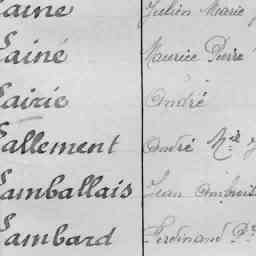 Lainé Julien Marie
Lainé Maurice Pierre
Lairie André
Lallement André Mie
Lamballais Jean Ambroise
Lambard Ferdinand Pre